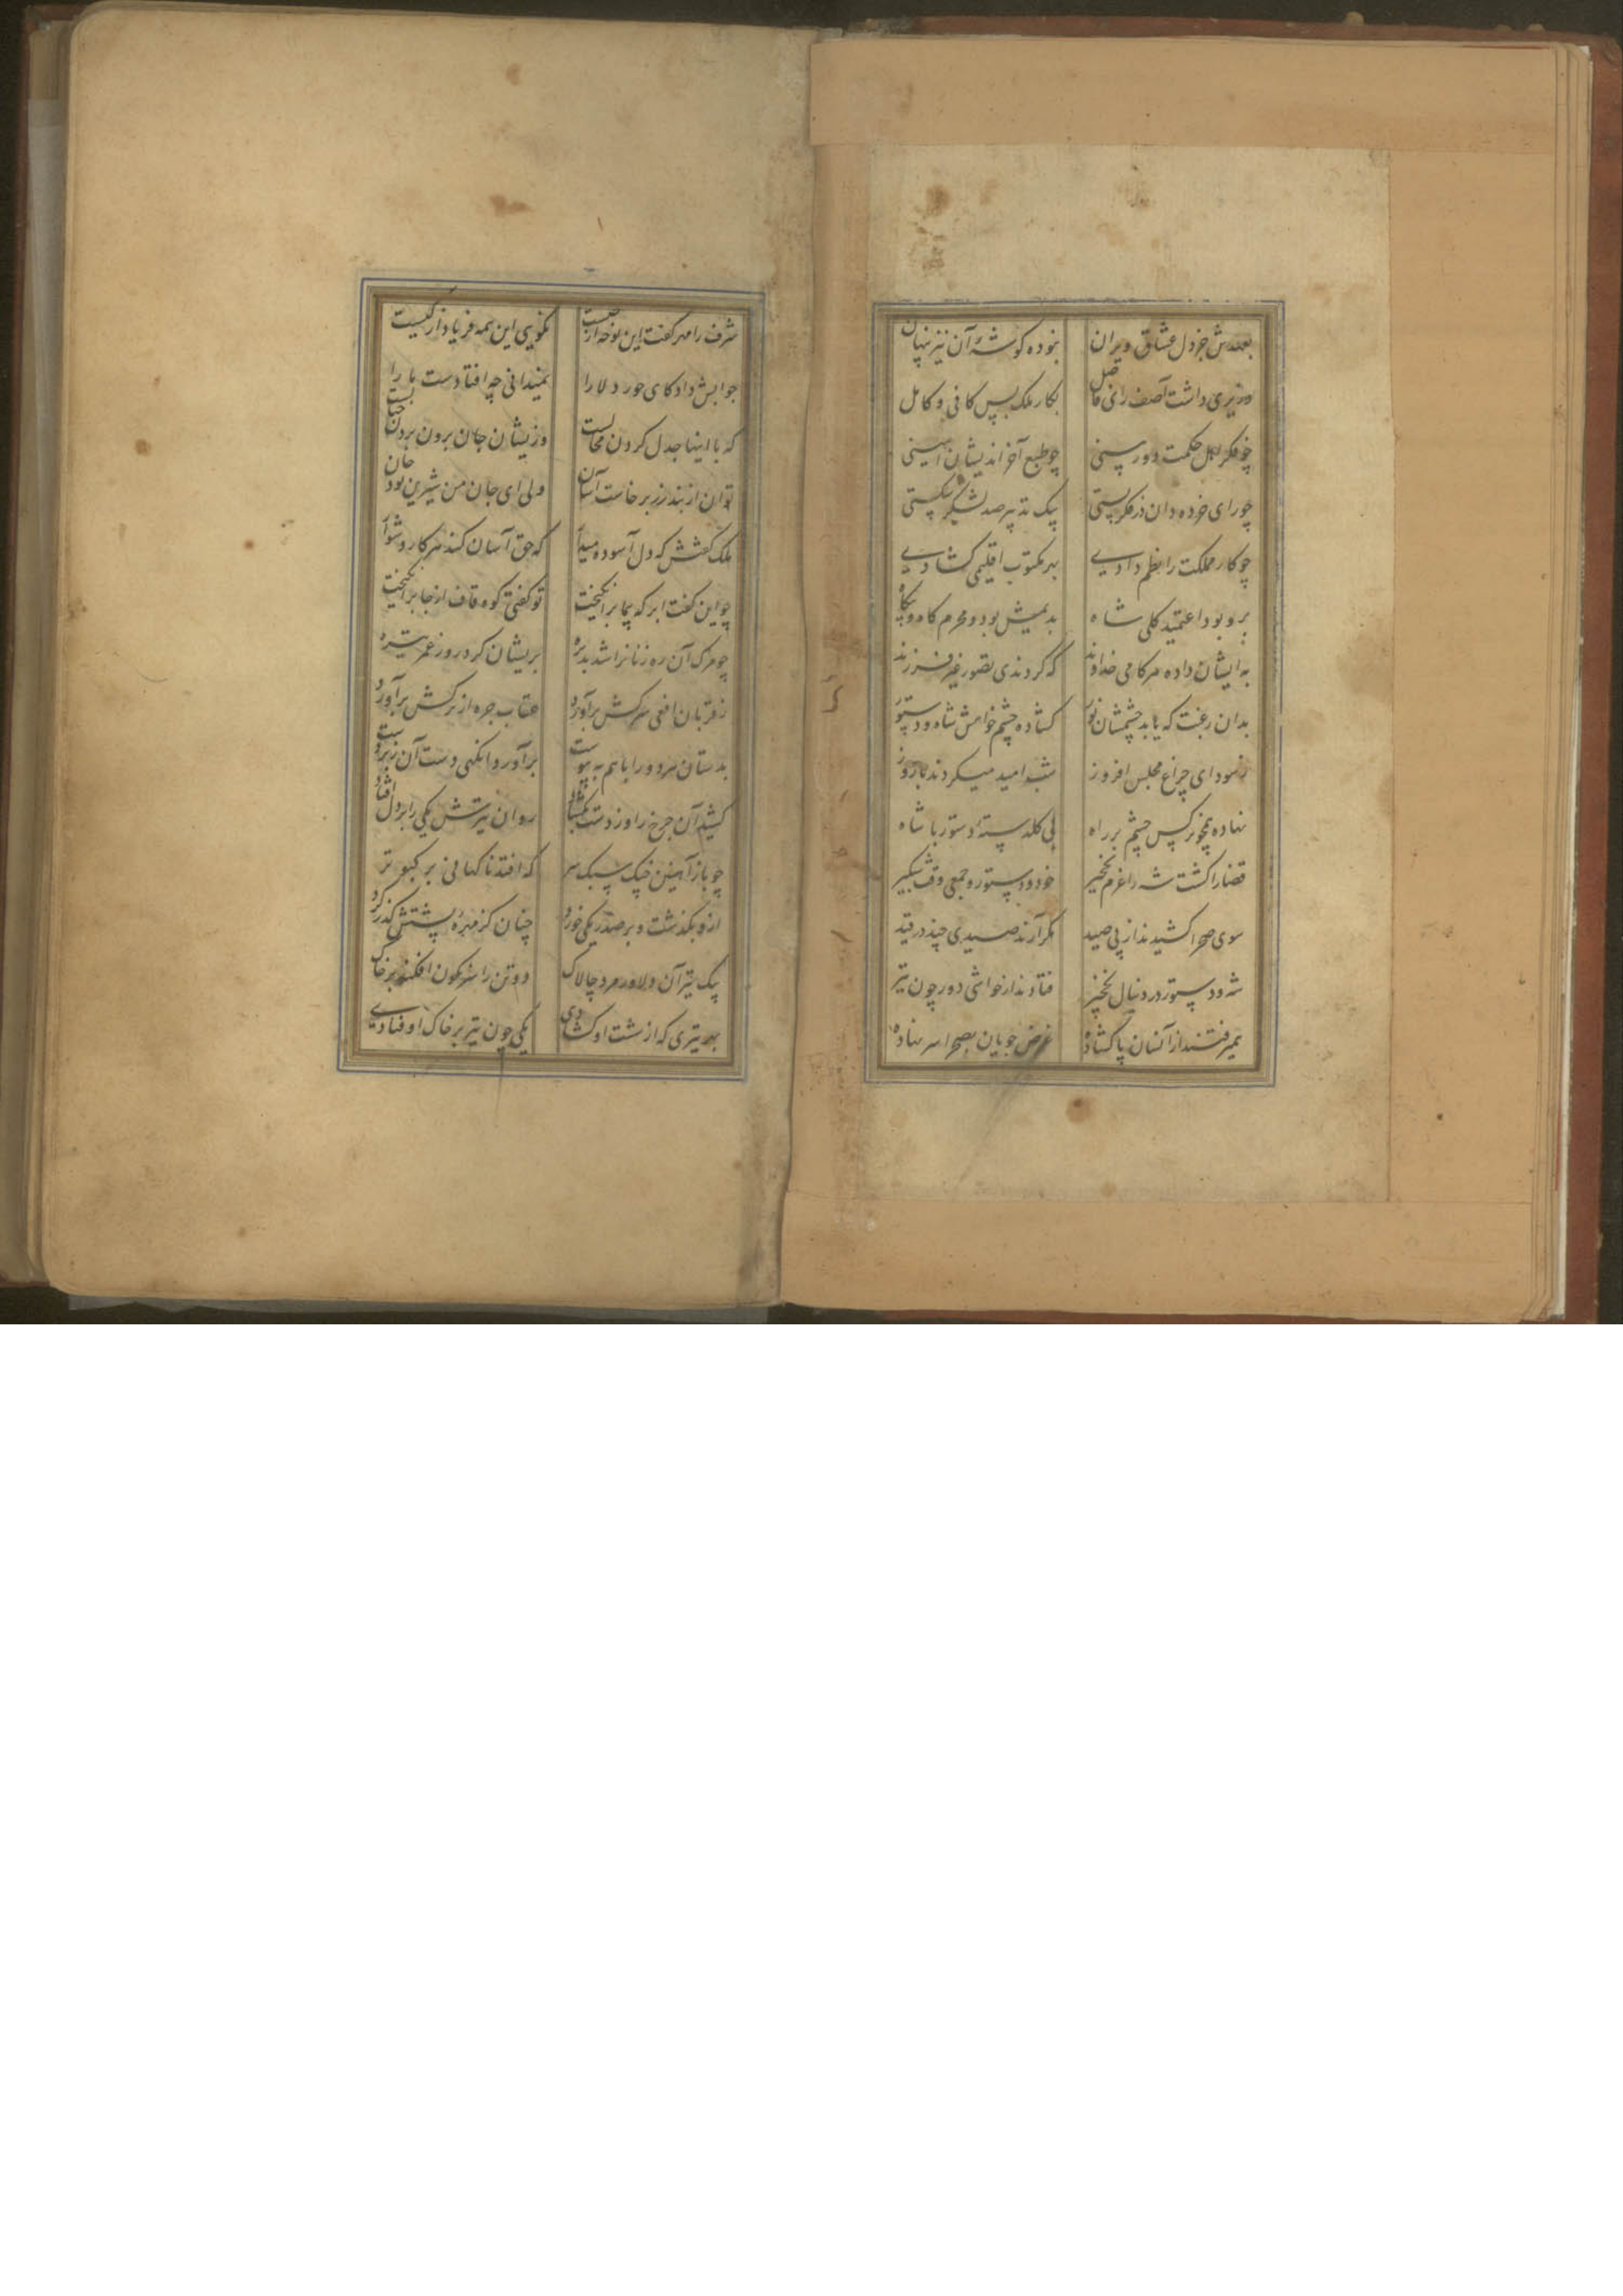 بعهدش جز دل عشاق ویران
نبوده گوشهٔ آن نیز پنهان
وزیری داشت آصف رای فاضل
بکار ملک بس کافی و کامل
چو فکر اهل حکمت دوربینی
چو طبع آخر اندیشان امینی
چو رای خرده دان در فکر بستی
بیک تدبیر صد لشکر شکستی
چو کار مملکت را نظم دادی
بهر مکتوب اقلیمی گشادی
برو بود اعتمید کلی شاه
ندیمش بود و محرم گاه و بیگاه
به ایشان داده هر کامی خداوند
که کردندی تصور غیر فرزند
بدان رغبت که یابد چشمشان نور
گشاده چشم خواهش شاه و دستور
نمود ای چراغ مجلس افروز
شب امید میکردند تا روز
نهاده همچو نرگس چشم بر راه
پی گلدستهٔ دستور با شاه
قضا را گشت شه را عزم نخجیر
خود و دستور و جمعی وقت شبگیر
سوی صحرا کشیدند از پی صید
مگر آرند صیدی چند در قید
شه و دستور در دنبال نخجیر
فتادند از حواشی دور چون تیر
همیرفتند از آنسان پا گشاده
غرض جویان بصحرا سر نهاده
شرف را مهر گفت این نوحه از چیست
نگویی این همه فریاد از کیست
جوابش داد کای حور دلارا
نمیدانی چه افتادست ما را
که با اینها جدل کردن محالست
وز یشان جان برون بردن خیالست
توان از بند زر برخاست آسان
ولی ای جان من شیرین بود جان
ملک گفتش که دل آسوده میدار
که حق آسان کند هر کار دشوار
چو این گفت ابرکه پیما برانگیخت
تو گفتی کوه قاف از جا برانگیخت
چو مرگ آن ره زنانرا شد پذیره
بریشان کرد روز عمر تیره
ز قربان افعی سرکش برآورد
عقاب جره از ترکش برآورد
بدستان هر دو را با هم بپیوست
برآورد آنگهی دست آن زبردست
کشید آن چرخ را وز دست بگشاد
روان تیرش یکی را بر دل افتاد
چو باز آهنین چنگ سبک سر
که افتد ناگهانی بر کبوتر
ازو بگذشت و بر صدر یکی خورد
چنان کز مهرهٔ پشتش گذر کرد
بیک تیر آن دلاور مرد چالاک
دو تن را سرنگون افکند بر خاک
بهر تیری که از شست او گشادی
یکی چون تیر بر خاک اوفتادی